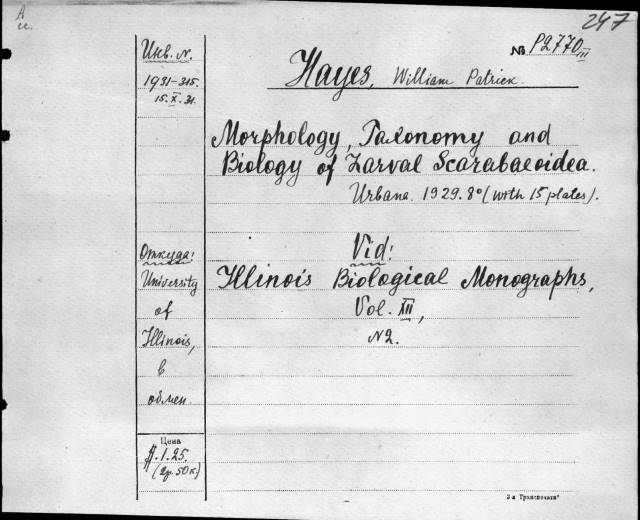 247
№ P2770 III
Инв. N.
1931-315.
15.X.31.
Hayes, William Patrick.
Morphology, Taxonomy and
Biology of Larval Scarabaeoidea.
Urbana. 1929. 8° (with 15 plates).
Откуда:
University
of
Illinois,
в
обмен.
Vid:
Illinois Biological Monographs,
Vol. XII,
N2.
Цена
$.1.25.
(2р. 50к.)
2-я Транспечать